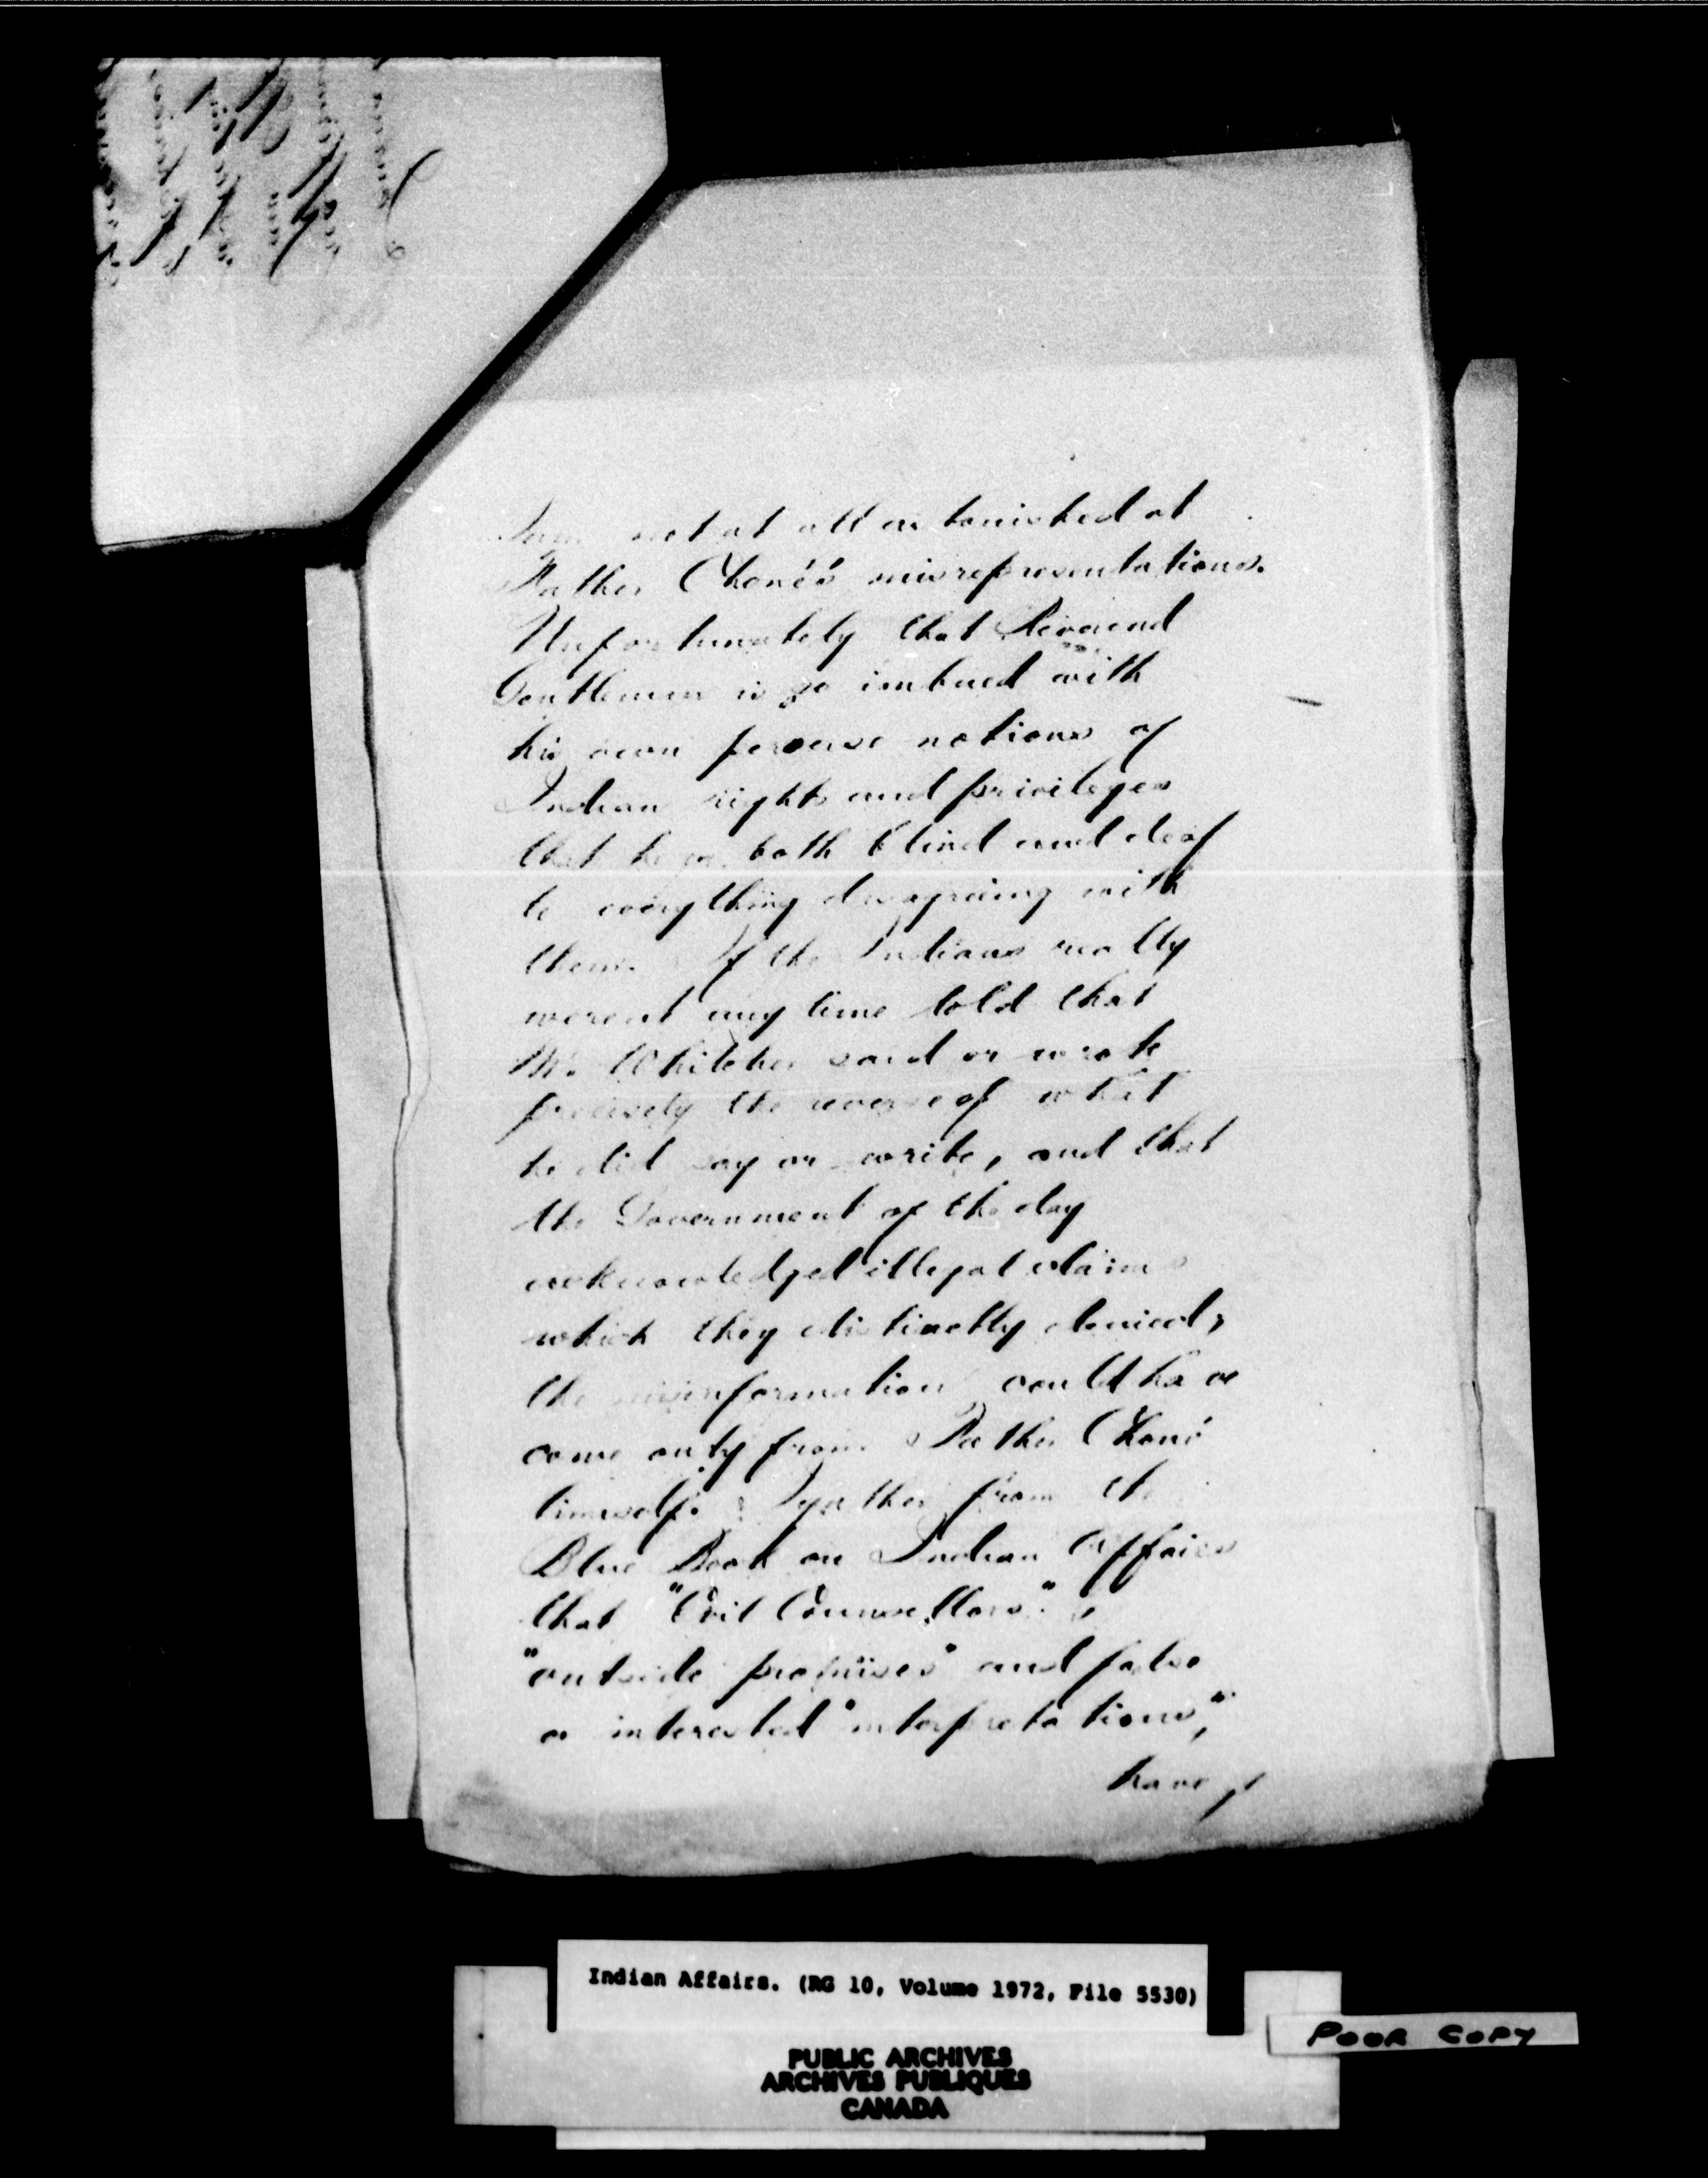 I am not at all astonished at
Father Choné's misrepresentations.
Unfortunately that Reverend
Gentleman is so imbued with
his own perverse notions of
Indian rights and privileges
that he is both blind and deaf
to everything disagreeing with
them. If the Indians really
were at any time told that
Mr. Whitcher said or wrote
precisely the reverse of what
he did say or write, and that
the Government of the day
acknowledged illegal claims
which they distinctly denied,
the misinformation could have
come only from Father Choné
himself. I gather from the
Blue Book on Indian Affairs
that "Evil Counsellors",
"outside promises" and false
or interested "interpretations",
have
Indian Affairs. (RG 10, Volume 1972, File 5530)
PUBLIC ARCHIVES
ARCHIVES PUBLIQUES
CANADA
POOR COPY